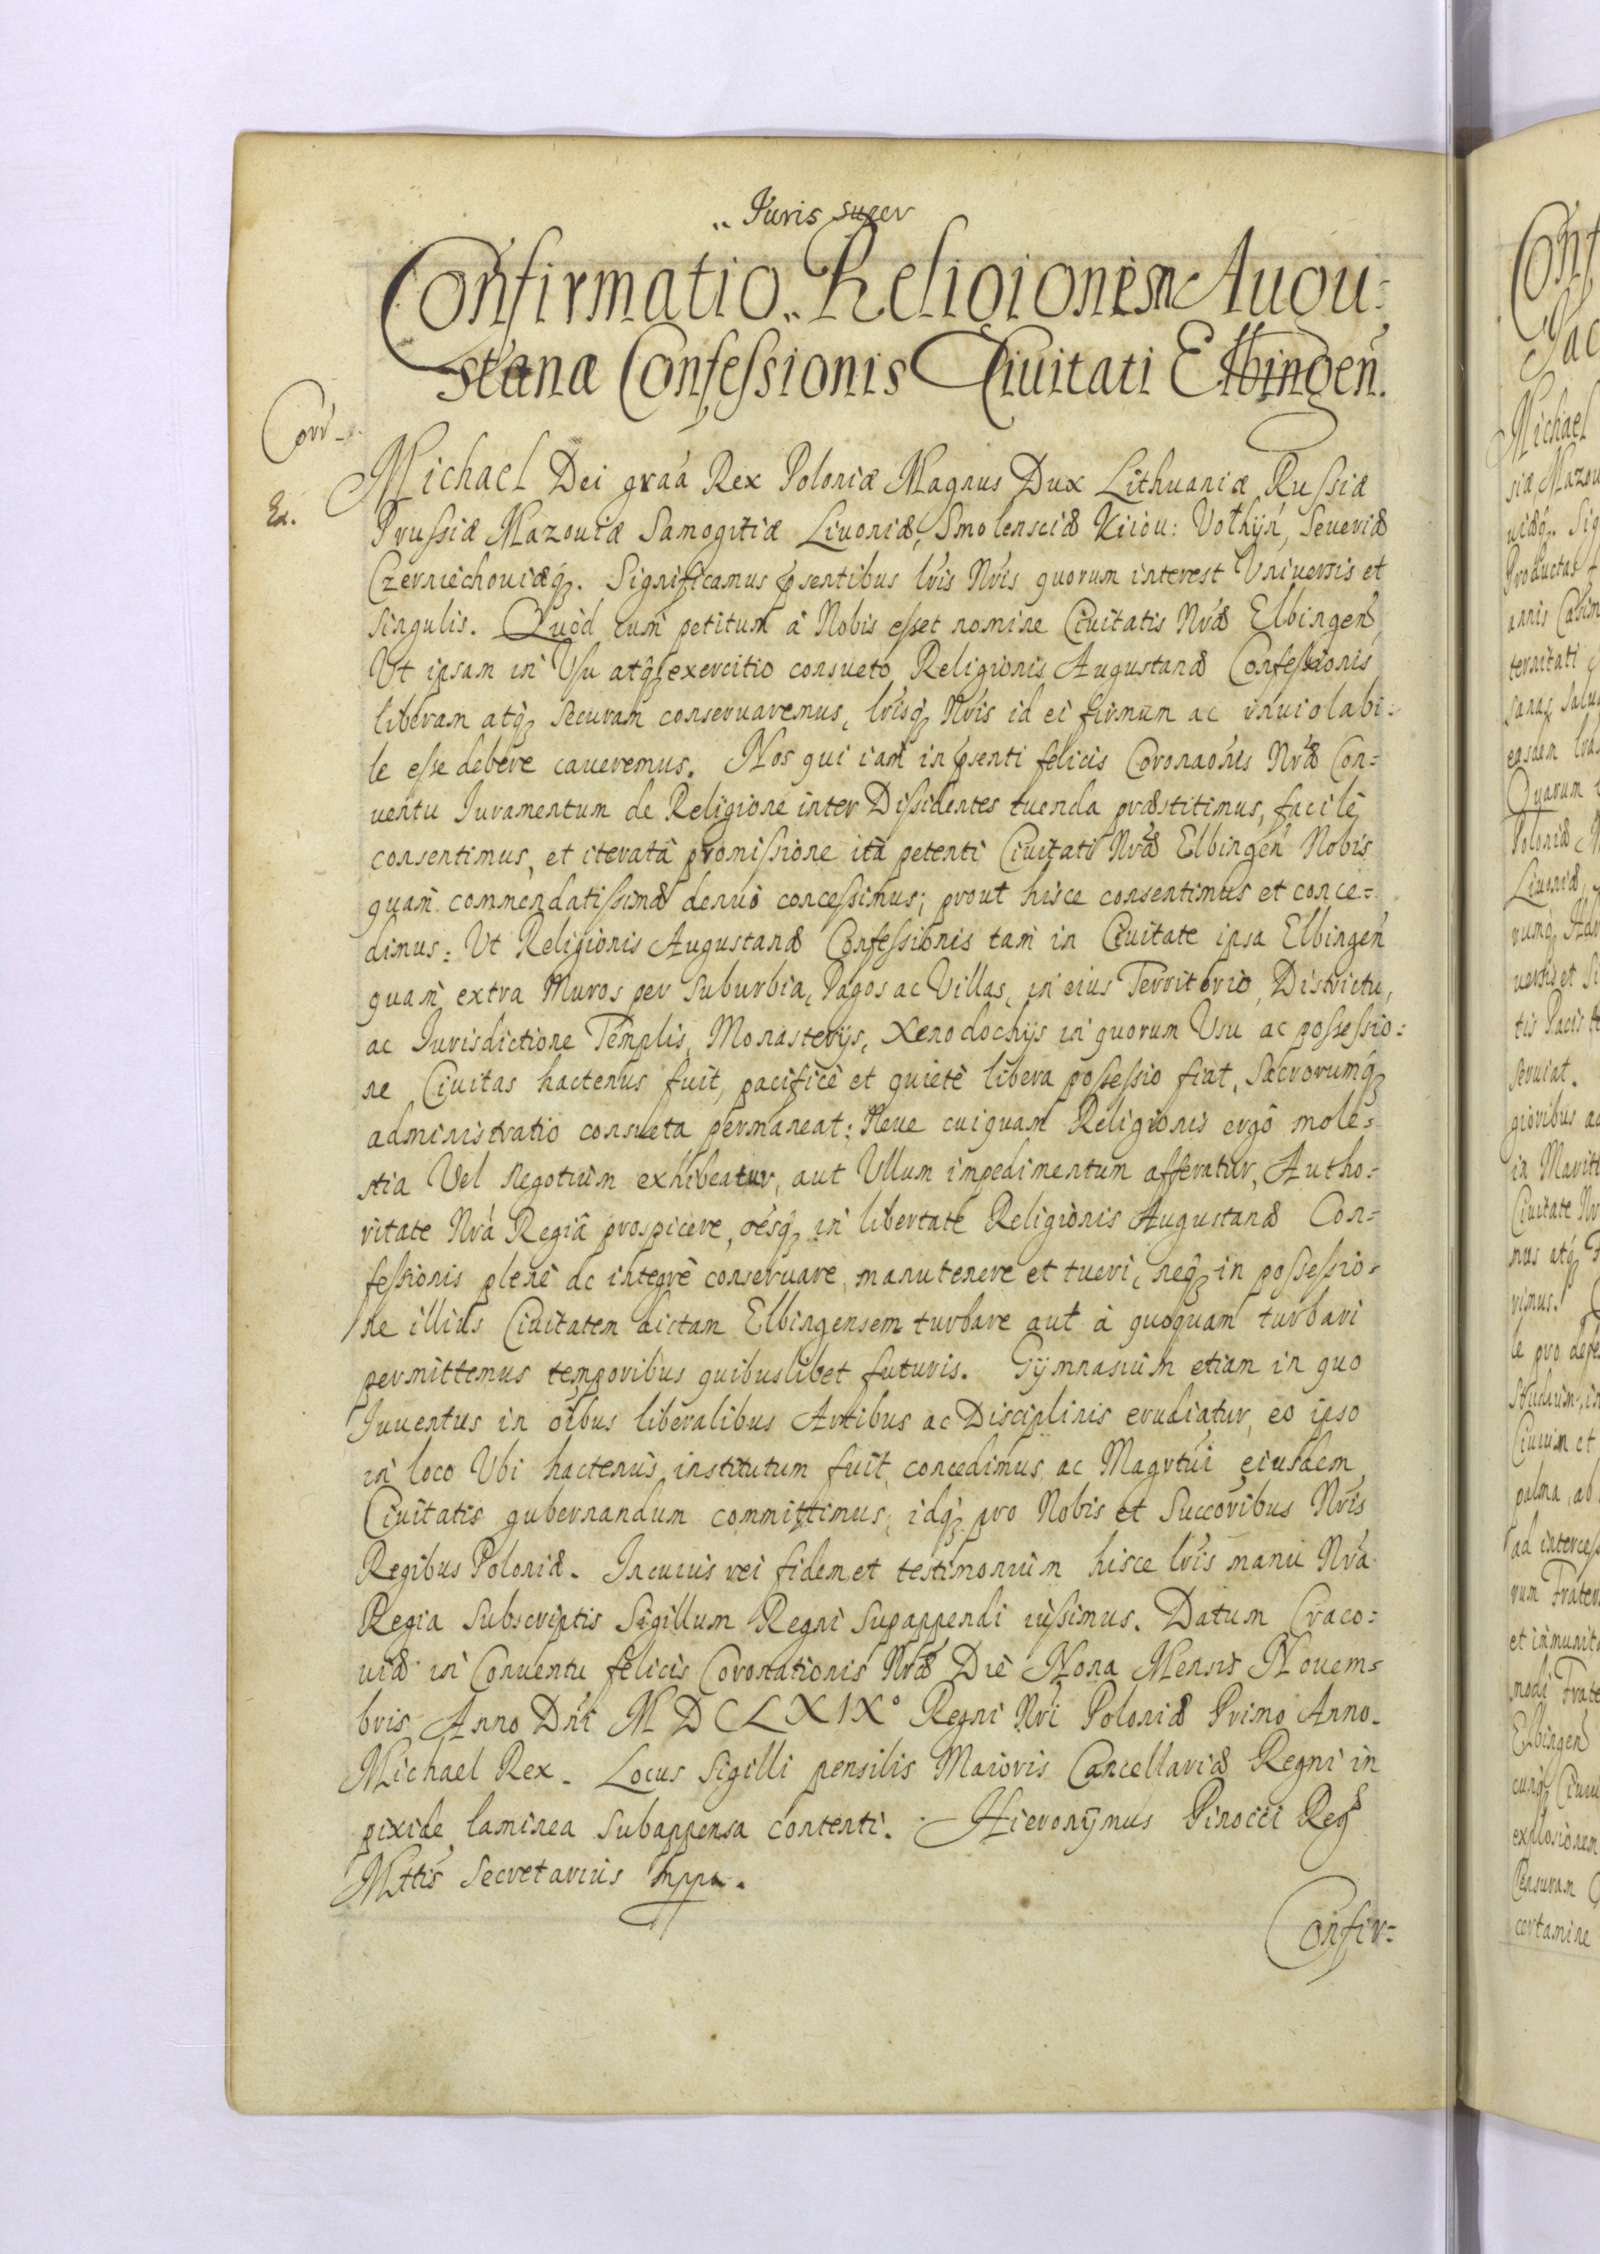 „ Iuris super
Confirmatio „ Religionem Augu=
stanæ Confessionis Ciuitati Elbingen̄.
Corr.
Ex.
Michael Dei gr̃aã Rex Poloniæ Magnus Dux Lithuaniæ Russiæ
Prussiæ Mazouiæ Samogitiæ Liuoniæ, Smolensciæ Kiiou: Volhÿn̄, Seueriæ
Czerniechouiæq̃. Significamus p̃sentibus lr̃is Nr̃is quorum interest Vniuersis et
singulis. Quòd cum petitum à Nobis esset nomine Ciuitatis Nr̃æ Elbingen̄,
Vt ipsam in Vsu atq̃ exercitio consueto Religionis Augustanæ Confessionis
liberam atq̃ securam conseruaremus, lr̃isq̃ Nr̃is id ei firmum ac inuiolabi=
le esse debere caueremus. Nos qui iam in p̃senti felicis Coronaõnis Nr̃æ Con=
uentu Iuramentum de Religione inter Dissidentes tuenda præstitimus, facilè
consentimus, et iteratâ promissione ità petenti Ciuitati Nr̃æ Elbingen̄ Nobis
quam commendatissimæ denuò concessimus; prout hisce consentimus et conce=
dimus: Vt Religionis Augustanæ Confessionis tam in Ciuitate ipsa Elbingen̄
quam extra Muros per Suburbia, Pagos ac Villas, in eius Territorio, Districtu,
ac Iurisdictione Templis, Monasterÿs, Xenodochÿs in quorum Vsu ac possessio=
ne Ciuitas hactenus fuit, pacificè et quietè libera possessio fiat, Sacrorumq̃
administratio consueta permaneat: Neue cuiquam Religionis ergò mole=
stia Vel negotium exhibeatur, aut Vllum impedimentum afferatur, Autho=
ritate Nr̃a Regiâ prospicere, oẽsq̃ in libertate Religionis Augustanæ Con=
fessionis plenè ac integrè conseruare, manutenere et tueri, neq̃ in possessio=
ne illius Ciuitatem dictam Elbingensem turbare aut à quoquam turbari
permittemus temporibus quibuslibet futuris. Gÿmnasium etiam in quo
Iuuentus in oĩbus liberalibus Artibus ac Disciplinis erudiatur, eo ipso
in loco Vbi hactenus institutum fuit, concedimus ac Magr̃tui eiusdem
Ciuitatis gubernandum committimus; idq̃ pro Nobis et Succoribus Nr̃is
Regibus Poloniæ. In cuius rei fidem et testimonium hisce lr̃is manu Nr̃a
Regia subscriptis Sigillum Regni supappendi iussimus. Datum Craco=
uiæ in Conuentu felicis Coronationis Nr̃æ Die Nona Mensis Nouem=
bris Anno Dn̄i MDCLXIX° Regni Nr̃i Poloniæ Primo Anno.
Michael Rex. Locus Sigilli pensilis Maioris Cancellariæ Regni in
pixide laminea subappensa contenti. Hieronÿmus Pinocci Reg̃
Mt̃tis Secretarius mppa.
Confir=